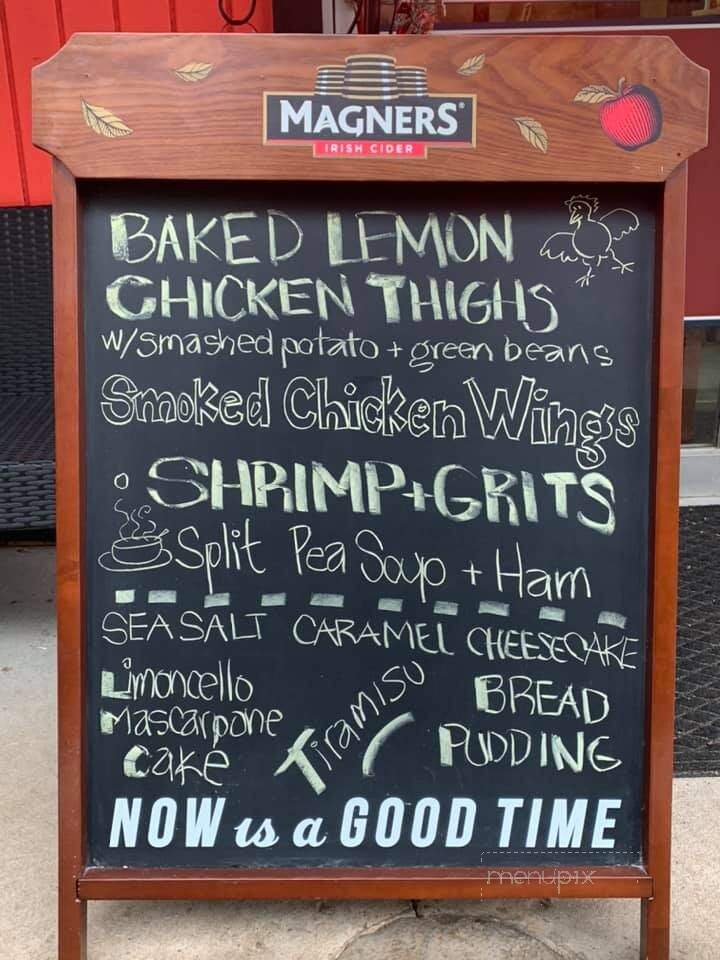 MAGNERS®
IRISH CIDER
BAKED LEMON
CHICKEN THIGHS
w/smashed potato + green beans
Smoked Chicken Wings
SHRIMP + GRITS
Split Pea Soup + Ham
SEA SALT CARAMEL CHEESECAKE
Limoncello
Mascarpone
cake
Tiramisu
BREAD
PUDDING
NOW is a GOOD TIME
menupix